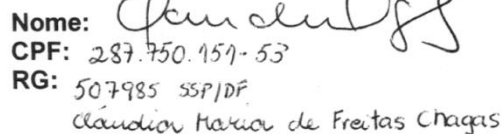 Nome:
CPF: 287.750.151-53
RG: 507985 SSP/DF
Claudia Maria de Freitas Chagas